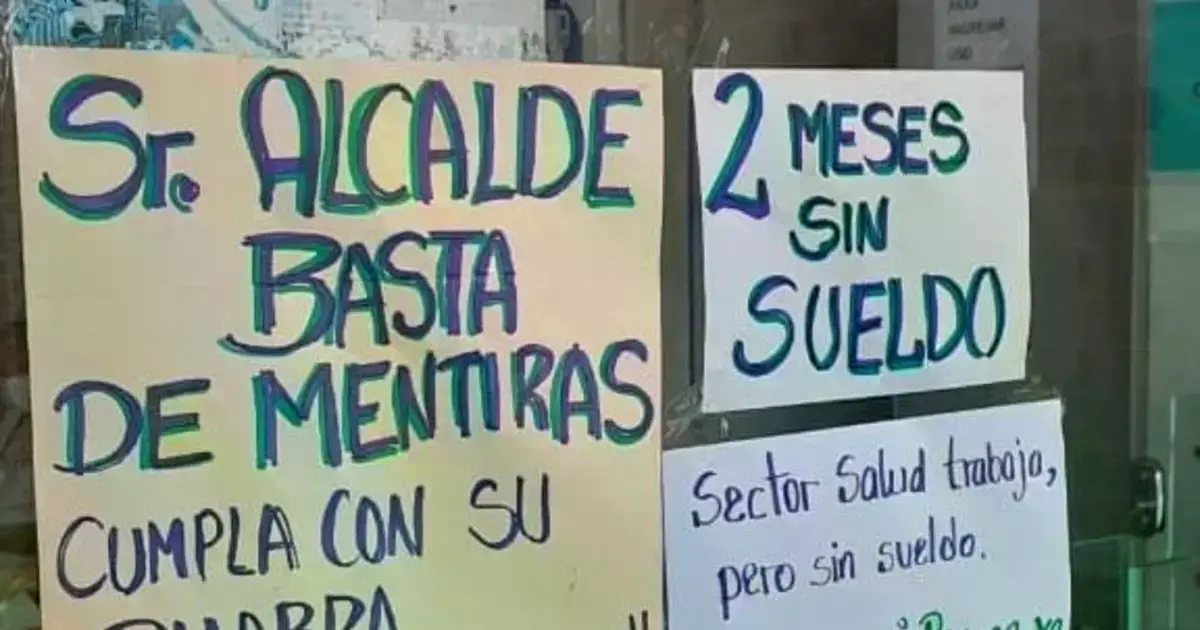 Sr. ALCALDE
BASTA
DE MENTIRAS
CUMPLA CON SU
2 MESES
SIN
SUELDO
Sector Salud trabaja,
pero sin sueldo.